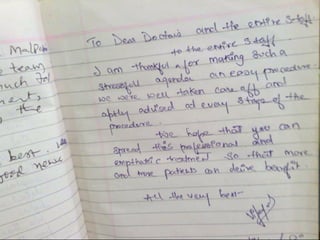 Malpa
e team,
much for
ments
the
best.
good news
To Dear Doctors and the entire staff
to the entire staff
I am thankful for making such a
stressful agenda an easy procedure.
We were well taken care off and
aptly advised at every stage of the
procedure.
We hope that you can
spread this professional and
emphatic treatment so that more
and more patients can derive benefit.
All the very best